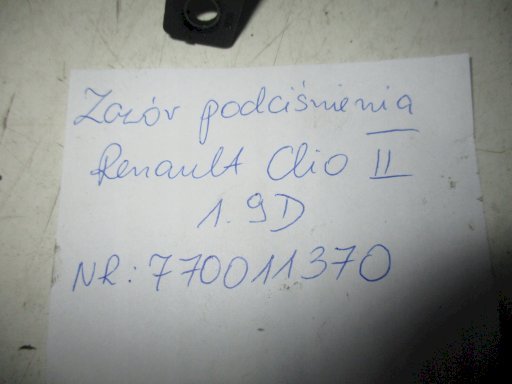 Zawór podciśnienia
Renault Clio II
1.9D
NR: 770011370